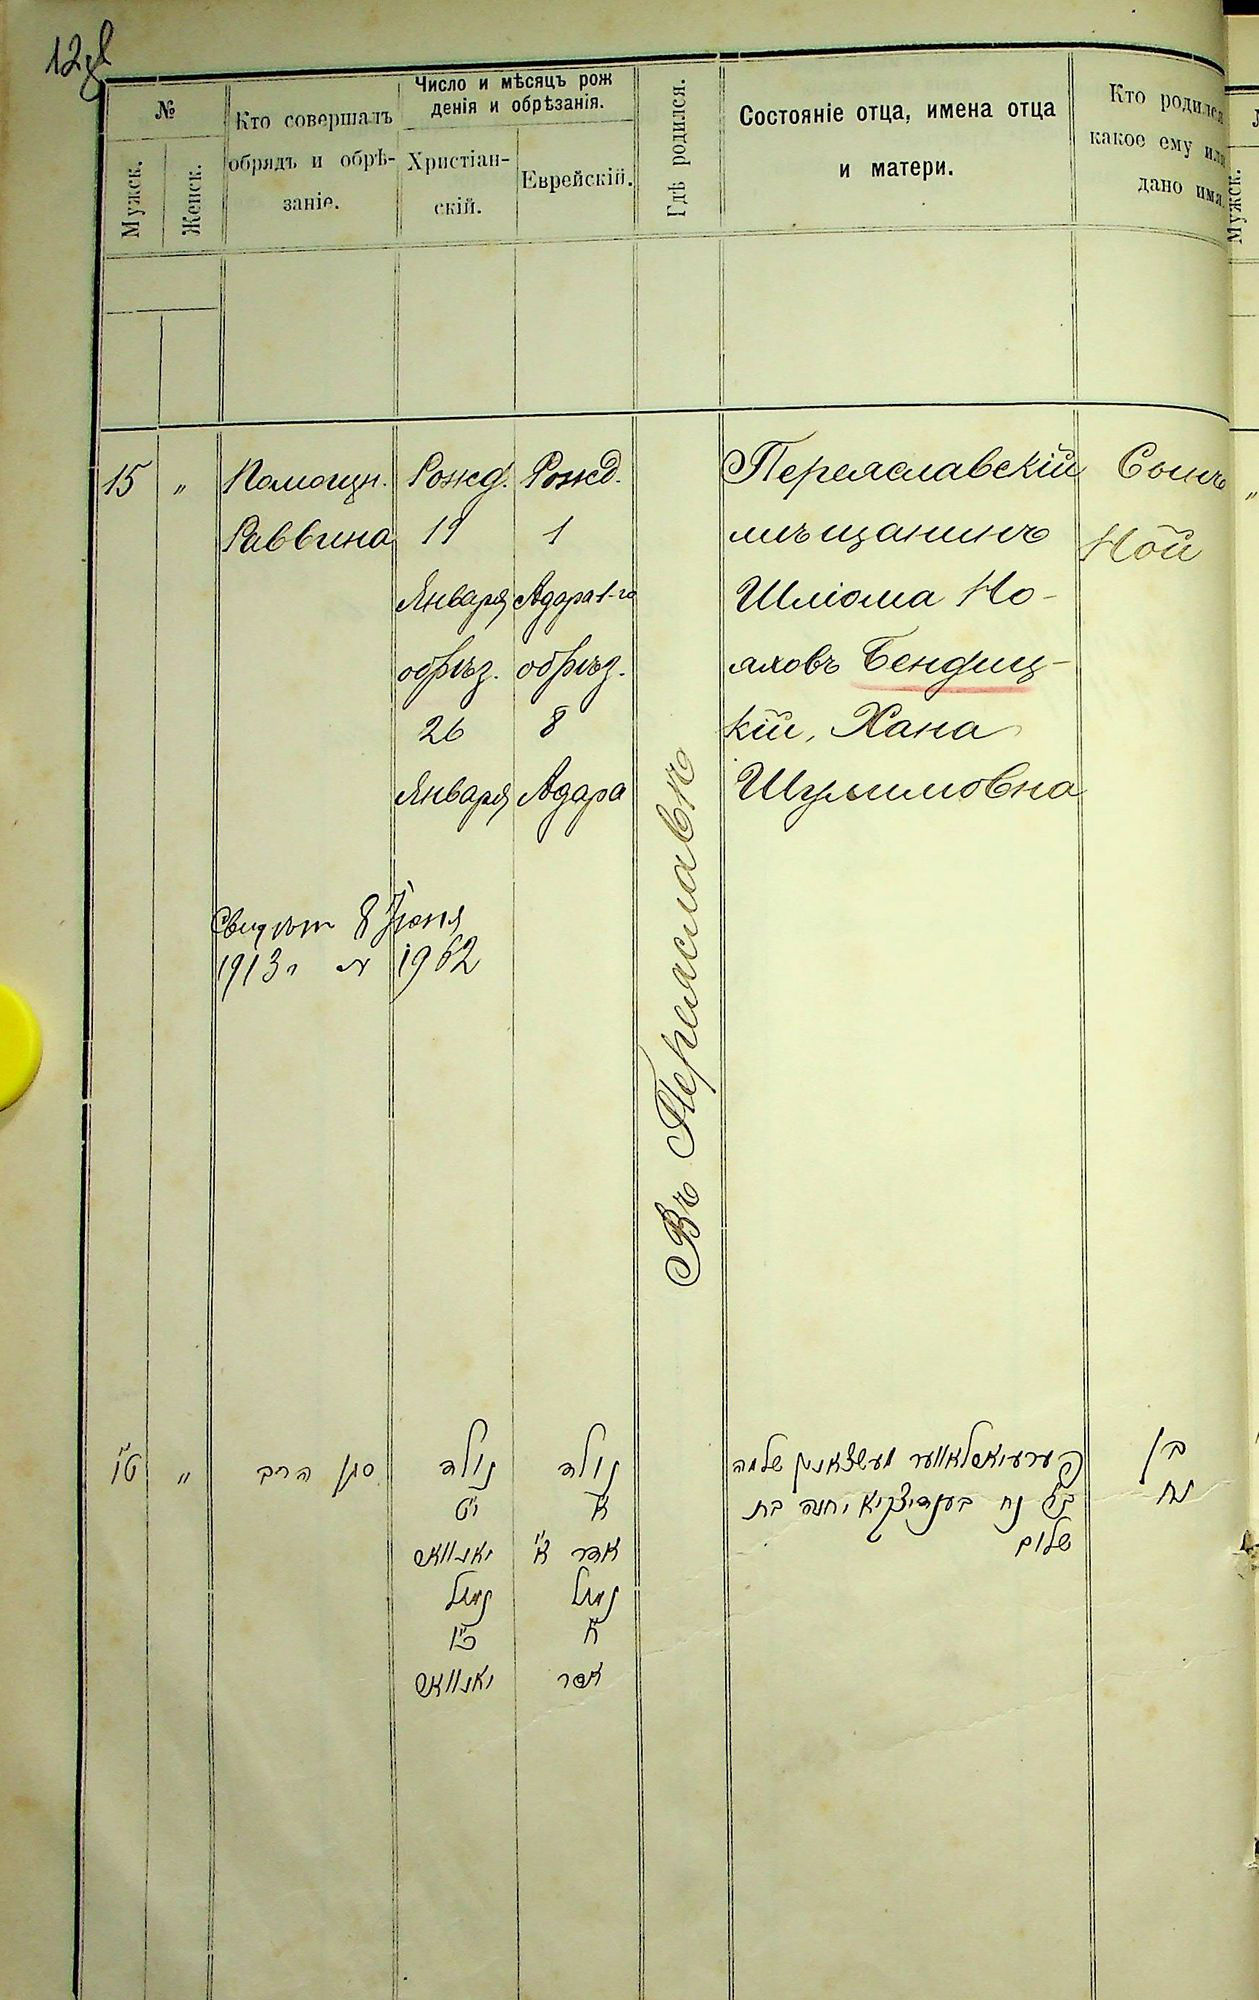 12 об
№
Мужск.
Женск.
Кто совершалъ
обрядъ и обрѣ-
заніе.
Число и мѣсяцъ рож
денія и обрѣзанія.
Христіан-
скій.
Еврейскій.
Гдѣ родился.
Состояніе отца, имена отца
и матери.
Кто родился
какое ему или
дано имя.
Мужск.
15
"
Помощн.
Раввина
Рожд.
19
Января
обрѣз.
26
Января
Рожд.
1
Адара 1-го
обрѣз.
8
Адара
Въ Переяславѣ
Переяславскій
мѣщанинъ
Шліома Но-
яховъ Бендиц-
кій, Хана
Шулимовна
Сынъ
Ной
Свидѣт 8 Іюня
1913 г № 1962
ט״ו
"
סגן הרב
נולד
י״ט
יאנוואש
נמול
כ״ו
יאנוואש
נולד
א׳
אדר א׳
נמול
ח׳
אדר
פערעיאסלאווער מעשצאנין שלמה
ב״ר נח בענדיצקיא וחנה בת
שלום
בן
נח